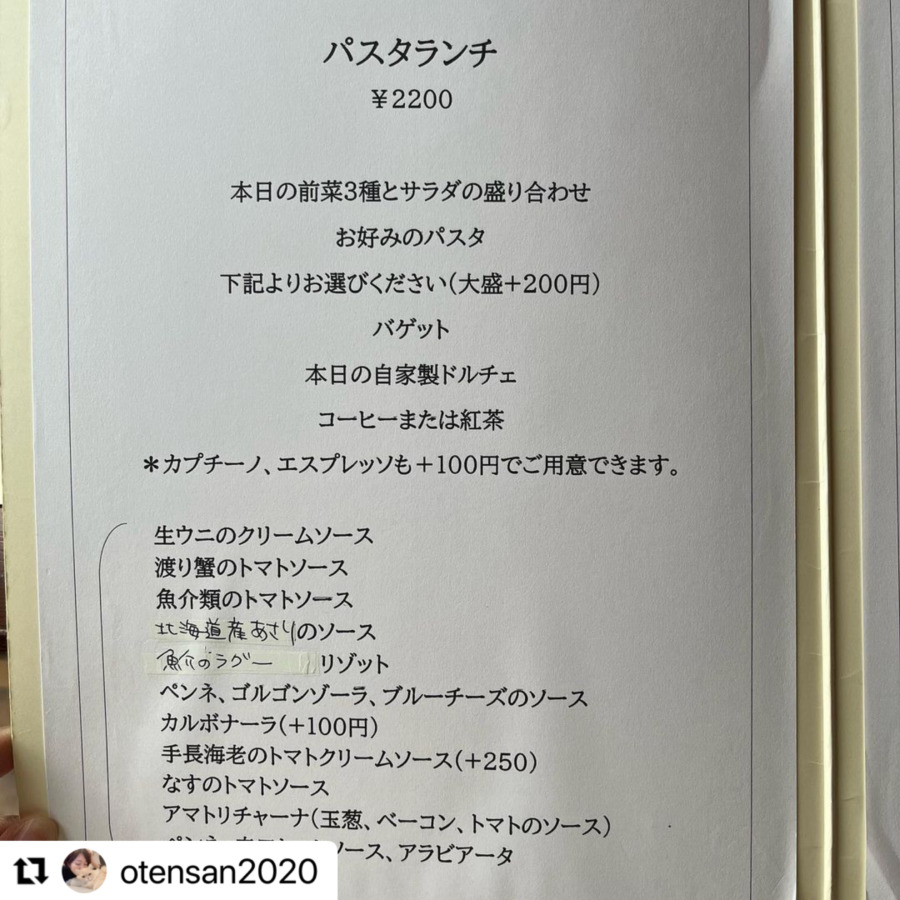 パスタランチ
￥2200
本日の前菜3種とサラダの盛り合わせ
お好みのパスタ
下記よりお選びください(大盛+200円)
バゲット
本日の自家製ドルチェ
コーヒーまたは紅茶
＊カプチーノ、エスプレッソも+100円でご用意できます。
生ウニのクリームソース
渡り蟹のトマトソース
魚介類のトマトソース
北海道産あさりのソース
魚介のラグー リゾット
ペンネ、ゴルゴンゾーラ、ブルーチーズのソース
カルボナーラ(+100円)
手長海老のトマトクリームソース(+250)
なすのトマトソース
アマトリチャーナ(玉葱、ベーコン、トマトのソース)
ソース、アラビアータ
otensan2020